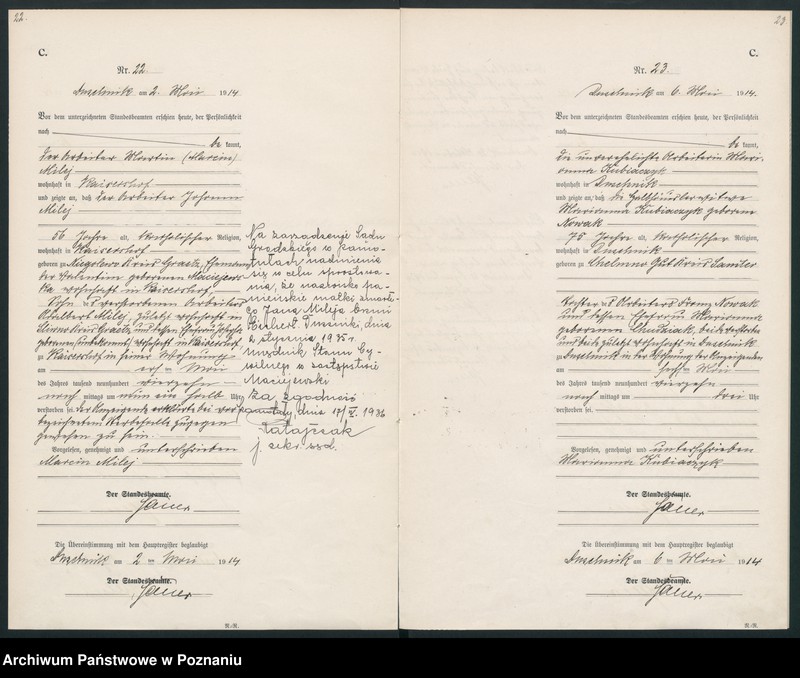 22.
C.
Nr. 22.
am 2. Mai 1914
Vor dem unterzeichneten Standesbeamten erschien heute, der Persönlichkeit
nach
be kannt,
der Arbeiter Martin (Marcin)
Milej
wohnhaft in Kaisershof
und zeigte an, daß der Arbeiter Johann
Milej
56 Jahre alt, katholischer Religion,
wohnhaft in Kaisershof
geboren zu Kreis Graetz, Ehemann
der Valentina geborenen
wohnhaft in Kaisershof
Sohn des verstorbenen Arbeiters
Adalbert Milej, zuletzt wohnhaft in
Kreis Graetz, und dessen Ehefrau Josefa
geborenen unbekannt, wohnhaft in Kaisershof,
zu Kaisershof in seiner Wohnung
am ersten Mai
des Jahres tausend neunhundert vierzehn
nach mittags um neun ein halb Uhr
verstorben sei. der Anzeigende erklärte bei vor
bezeichnetem Sterbefalle zugegen
gewesen zu sein.
Vorgelesen, genehmigt und unterschrieben
Marcin Milej
Der Standesbeamte.
Die Übereinstimmung mit dem Hauptregister beglaubigt
am 2 ten Mai 1914
Der Standesbeamte.
R.-R.
Na zarządzenie Sądu
Grodzkiego w
nadmienia
się w celu sprostowa-
nia, że nazwisko pa-
nieńskie matki zmarłe-
go Jana Mileja brzmi
dnia
2 stycznia 1935 r.
Urzędnik Stanu Cy-
wilnego w zastępstwie
Maciejewski
Za zgodność
dnia 17/V. 1936
Ratajczak
j. sekr. sąd.
23
C.
Nr. 23.
am 6. Mai 1914.
Vor dem unterzeichneten Standesbeamten erschien heute, der Persönlichkeit
nach
be kannt,
die unverehelichte Arbeiterin Mari-
anna Kubiaczyk
wohnhaft in
und zeigte an, daß die Halbhäuslerwitwe
Marianna Kubiaczyk geborene
Nowak
75 Jahre alt, katholischer Religion,
wohnhaft in
geboren zu Chelmno Kreis Samter
Tochter des Arbeiters Franz Nowak
und dessen Ehefrau Marianna
geborenen beide verstorben
und beide zuletzt wohnhaft in
zu in der Wohnung der Anzeigenden
am sechsten Mai
des Jahres tausend neunhundert vierzehn
nach mittags um drei Uhr
verstorben sei.
Vorgelesen, genehmigt und unterschrieben
Marianna Kubiaczyk
Der Standesbeamte.
Die Übereinstimmung mit dem Hauptregister beglaubigt
am 6 ten Mai 1914
Der Standesbeamte.
R.-R.
Archiwum Państwowe w Poznaniu